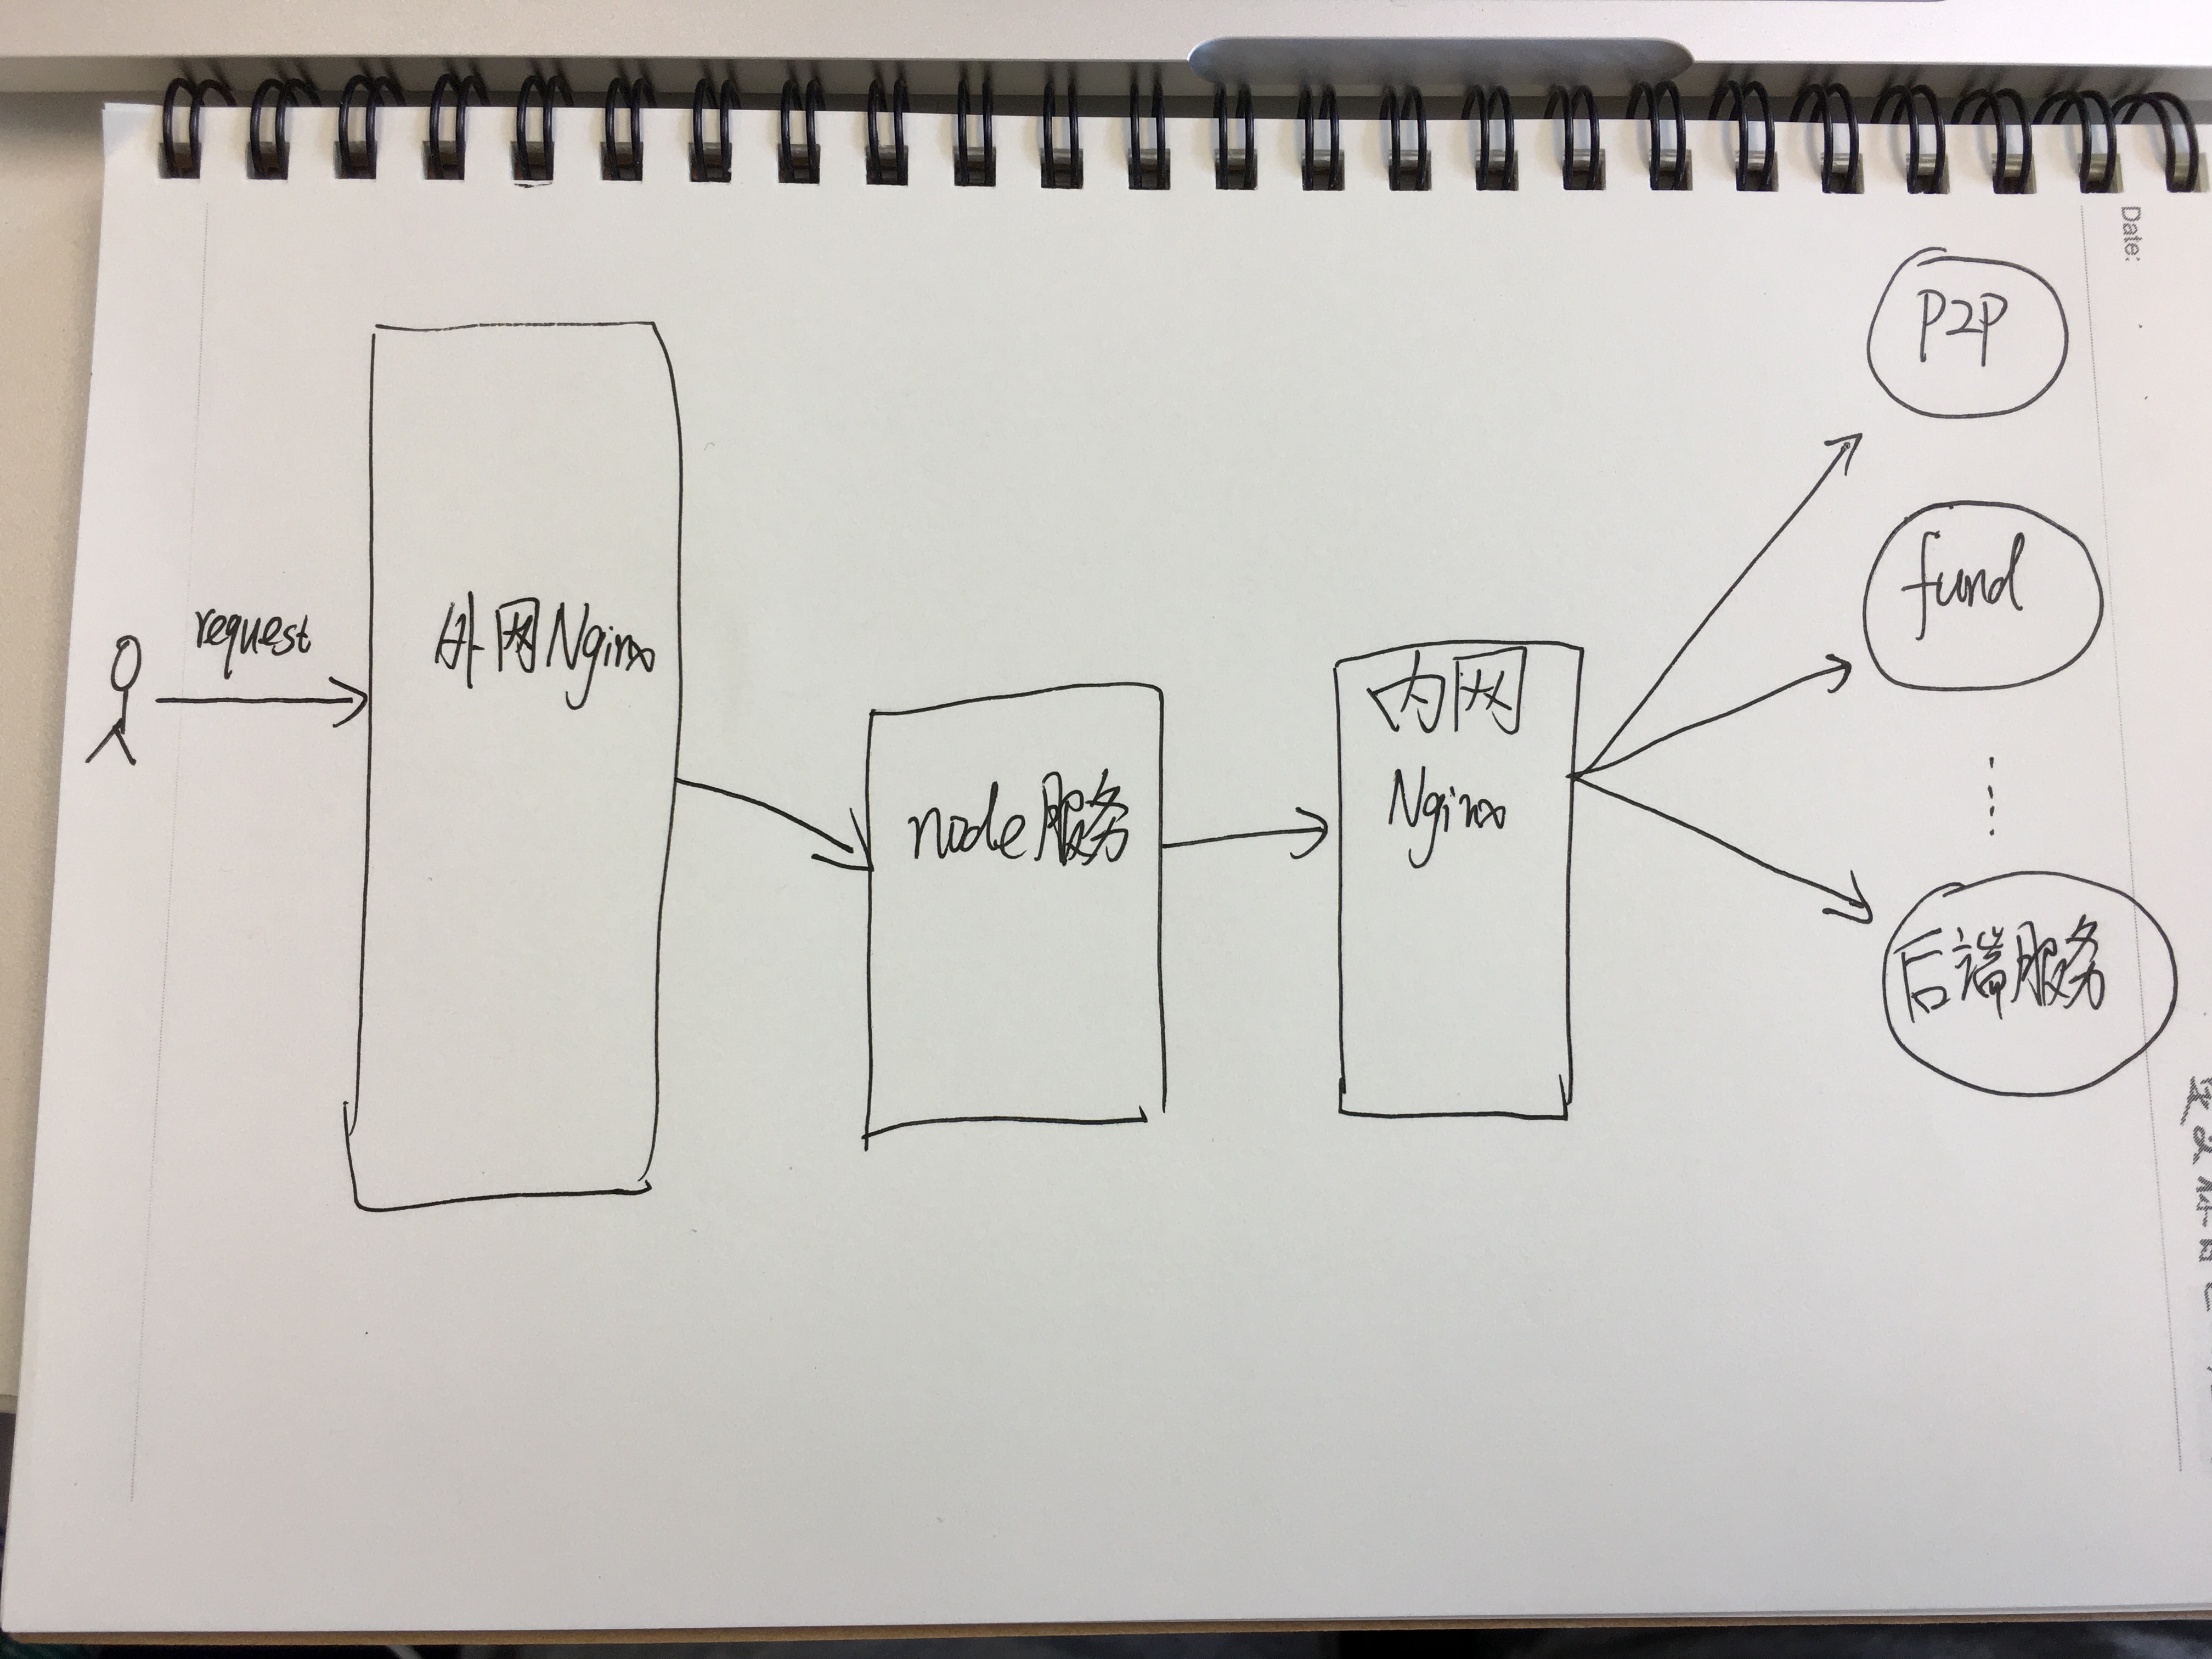 request
外网Nginx
node服务
内网
Nginx
P2P
fund
......
后端服务
Date: